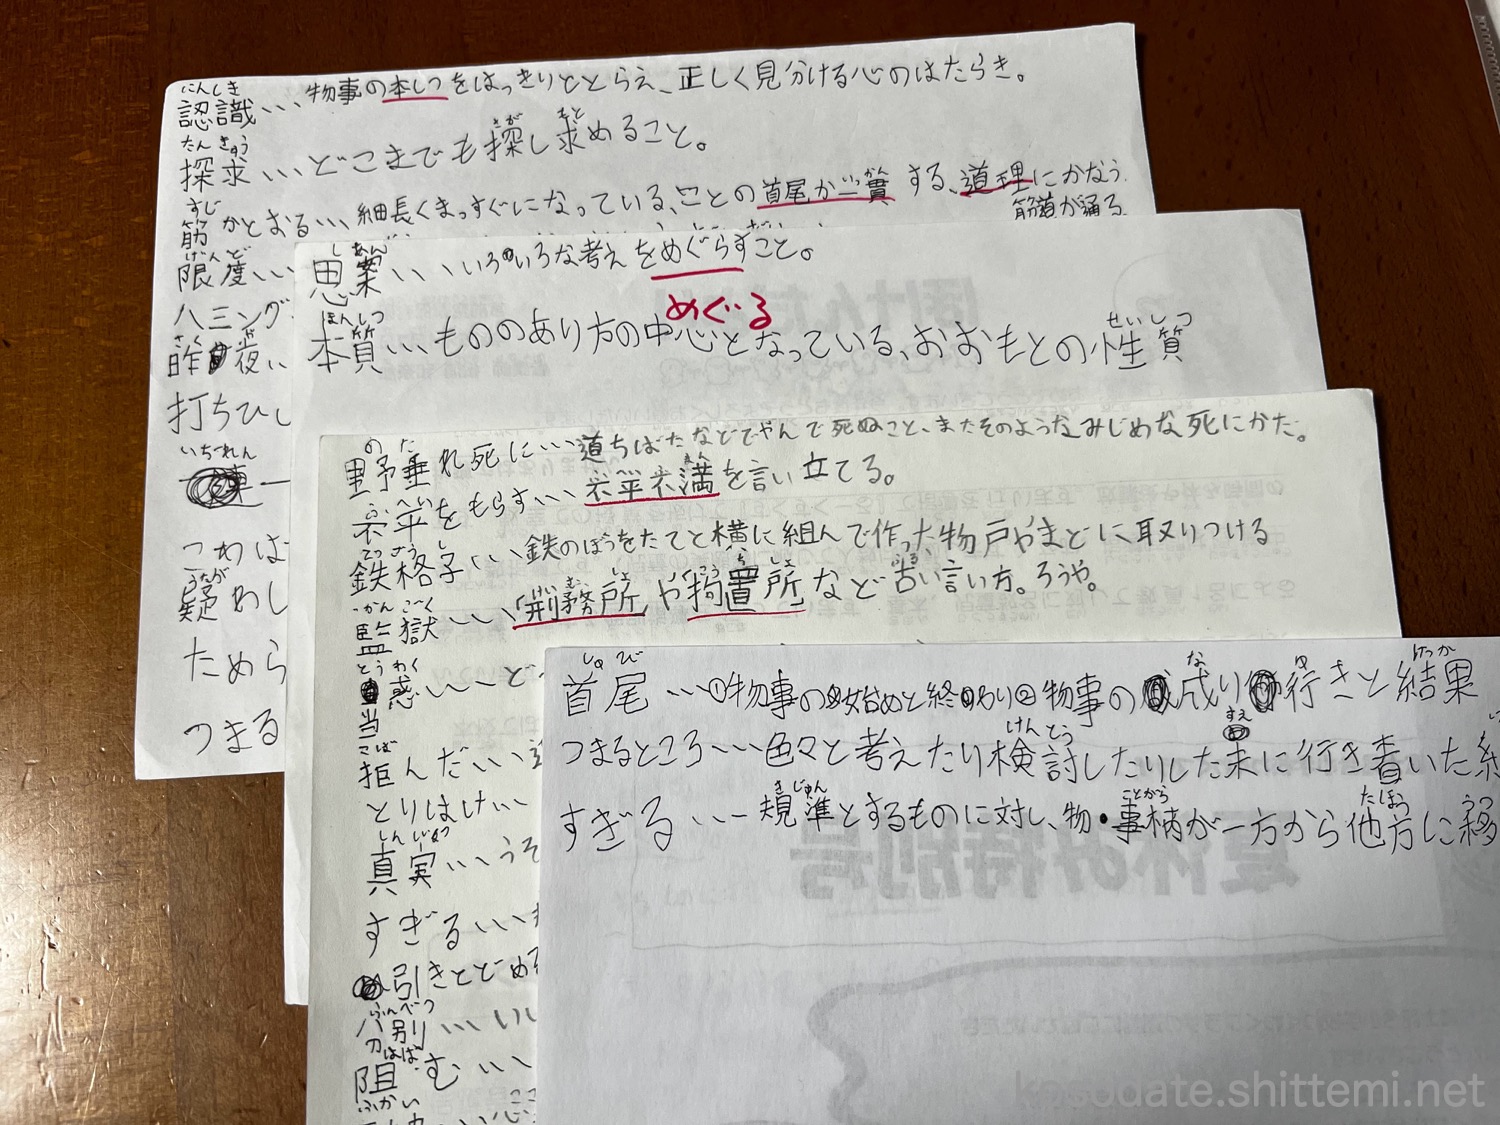 にんしき
認識…物事の本しつをはっきりととらえ、正しく見分ける心のはたらき。
たんきゅう さが もと
探求…どこまでも探し求めること。
すじ かん
筋がとおる…細長くまっすぐになっている、ことの首尾が一貫する、道理にかなう。
筋道が通る
げんど
限度…
ハミング
さくや
昨夜…
打ちひし
いちれん
一連
こわば
うたが
疑わし
ためら
つまる
しあん
思案…いろいろな考えをめぐらすこと。
めぐる
ほんしつ せいしつ
本質…もののあり方の中心となっている、おおもとの性質
のた
野垂れ死に…道ちばたなどでやんで死ぬこと、またそのようなみじめな死にかた。
ふへい まん
不平をもらす…不平不満を言い立てる。
てつごうし
鉄格子…鉄のぼうをたてと横に組んで作った物戸やまどに取りつける
かんごく むしょ こうちしょ ふる
監獄…「刑務所」や「拘置所」など古い言い方。ろうや。
とうわく
惑…ど
当
こば
拒んだ…
とりはけ…
しんじつ
真実…うそ
すぎる…
引きとどめる
ふんべつ
分別…いい
はば
阻む…
ふかい
しゅび な ゆ けっか
首尾…①物事の始めと終わり②物事の成り行きと結果
けんとう すえ
つまるところ…色々と考えたり検討したりした末に行き着いた結
きじゅん ことがら たほう うつ
すぎる…規準とするものに対し、物・事柄が一方から他方に移
夏休み特別号
kosodate.shittemi.net